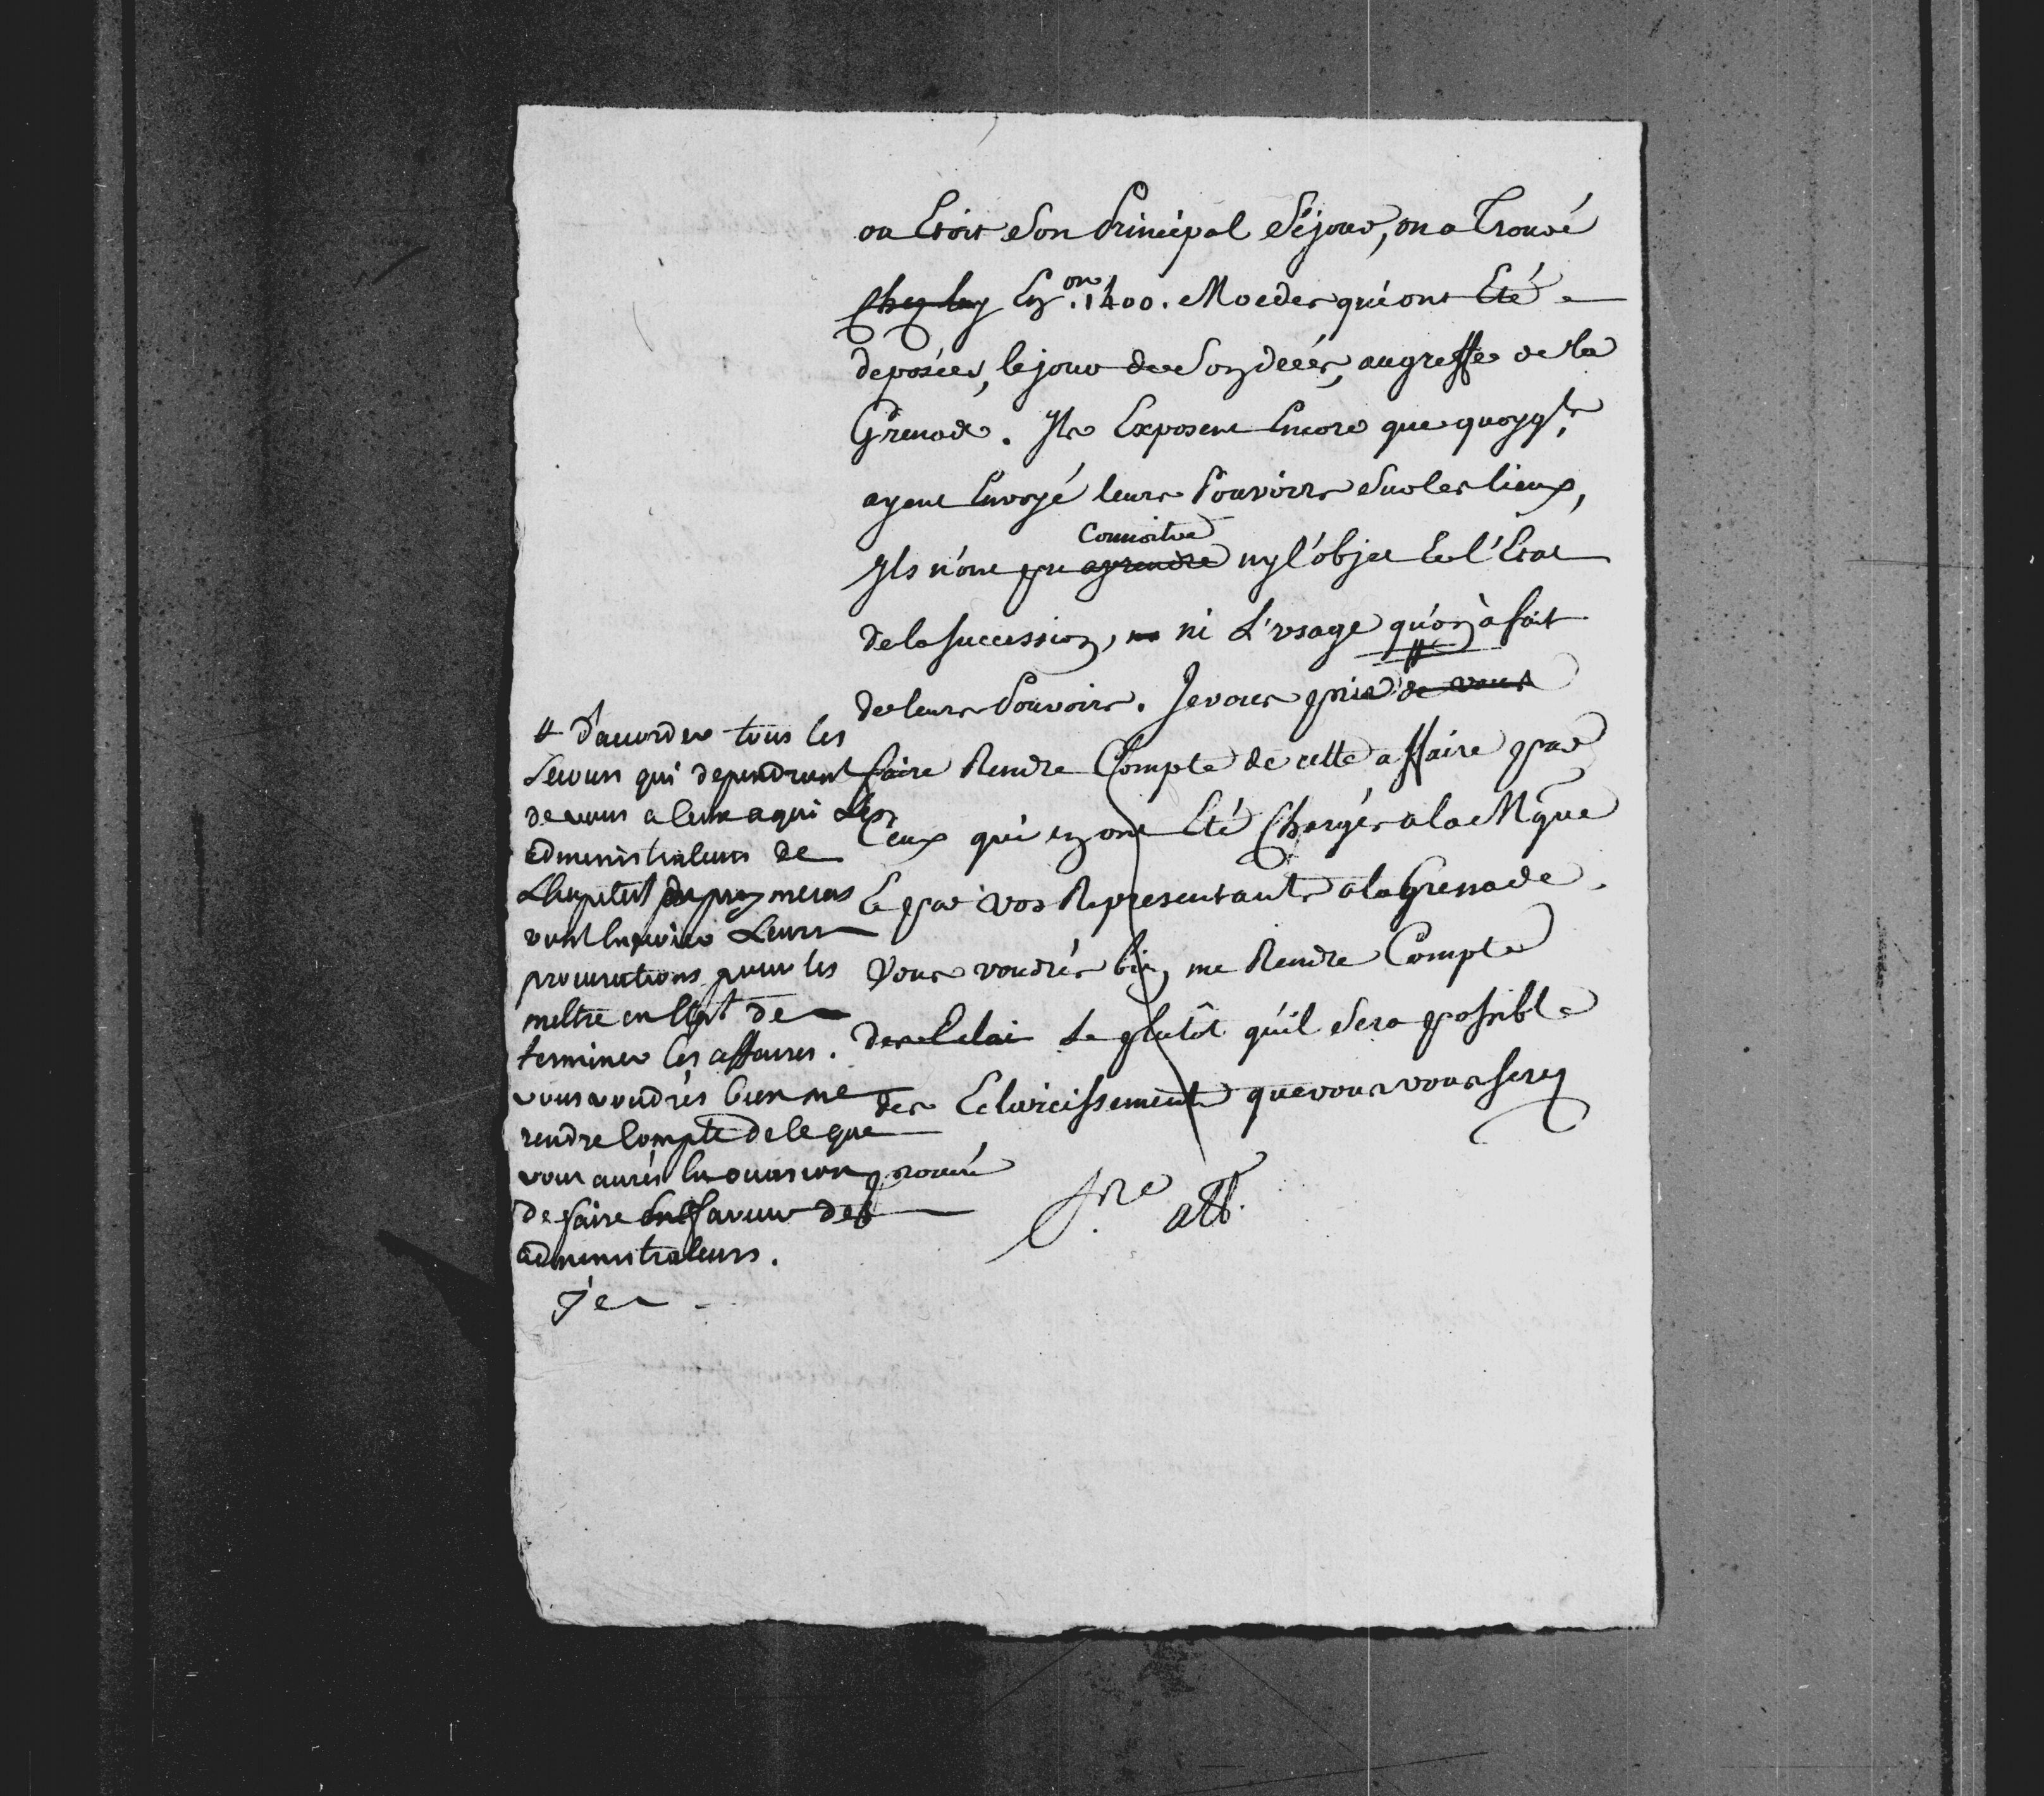 ou Etoit Son Principal Séjour, on a Trouvé
Chez luy Exon. 1400. Moedes qui ont Eté
deposées, le jour de Son decés, au greffe de la
Grenade. Ils Exposent Encore que quoyqls
ayent Envoyé leurs Pouvoirs Sur les lieux,
Connoitre
Ils n'ont pu aprendre ny l'objet Et l'Etat
de la succession, ni L'usage qu'on à fait
de leurs Pouvoirs. Je vous prie de vous
faire Rendre Compte de cette affaire par
Ceux qui en ont Eté Chargés a la Mque
Et par vos Representants a la Grenade.
Vous voudrés bien me Rendre Compte
des Eclai Le plutôt qu'il Sera possible
des Eclaircissements que vous vous serez
procuré
# d'accorder tous les
secours qui dependront
de vous a ceux a qui Les
administrateurs de
vont Envoier Leurs
procurations pour les
mettre en Etat de
terminer les affaires.
vous voudrés bien me
rendre Compte de ce que
vous aurés Eu occasion
de faire En faveur des
administrateurs.
Je